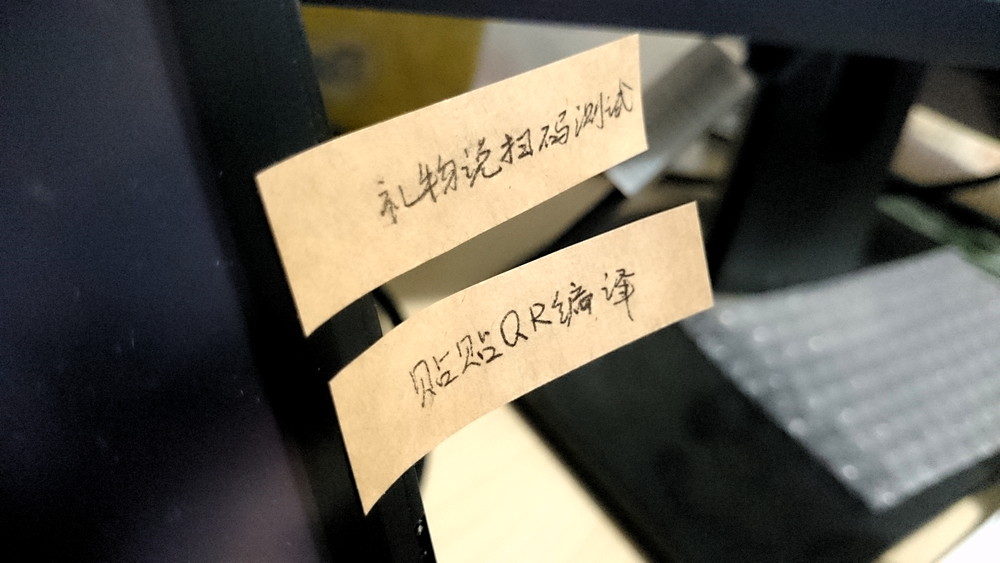 礼物说扫码测试
贴贴QR编译